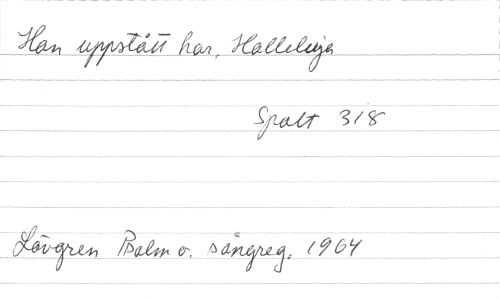 Han uppstått har, Halleluja
Spalt 318
Lövgren Psalm o. sångreg. 1964